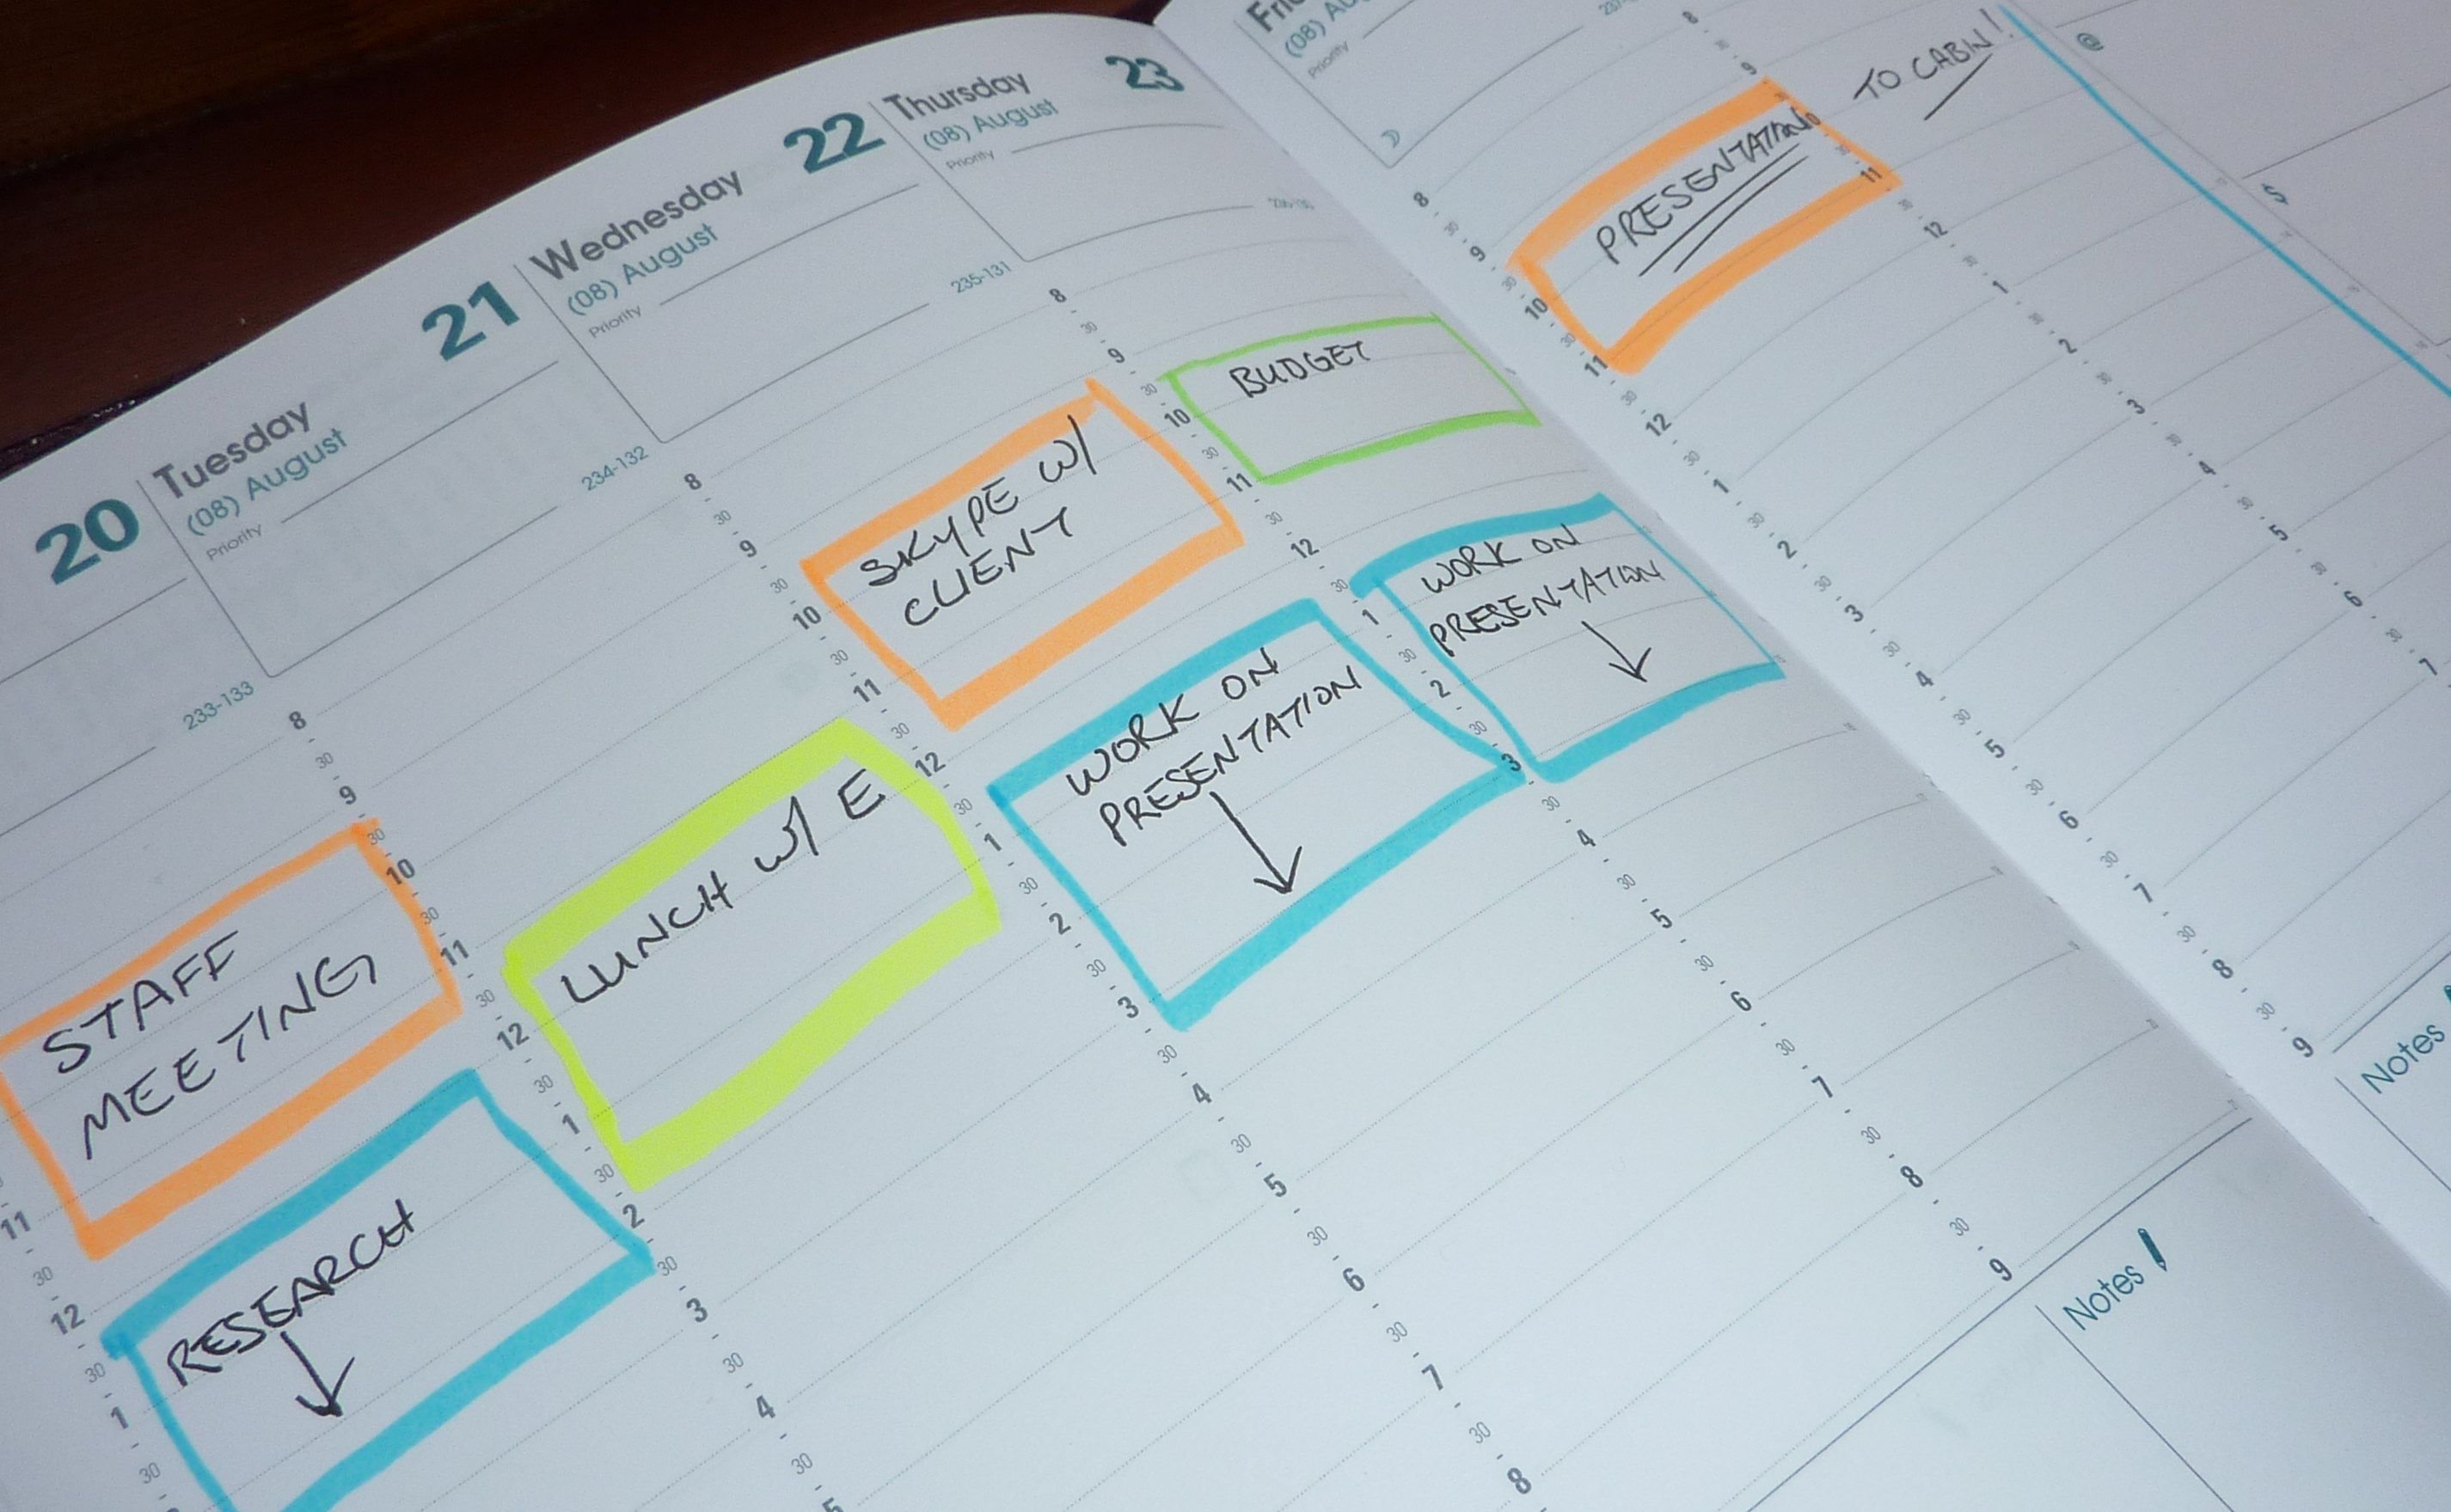 20
233-133
11
30
12
30
1
30
STAFF
MEETING
RESEARCH
Tuesday 21
(08) August
Priority
234-132
8
30
9
30
10
30
11
30
12
30
1
30
2
30
3
30
4
30
5
LUNCH W/ E
Wednesday 22
(08) August
Priority
235-131
8
30
9
30
10
30
11
30
12
30
1
30
2
30
3
30
4
30
5
30
6
30
7
30
8
SKYPE W/
CLIENT
WORK ON
PRESENTATION
Thursday 23
(08) August
Priority
8
30
9
30
10
30
11
30
12
30
1
30
2
30
3
30
4
30
5
30
6
30
7
30
8
30
9
BUDGET
WORK ON
PRESENTATION
Notes
(08)
Priority
8
30
9
30
10
30
11
30
12
30
1
30
2
30
3
30
4
30
5
30
6
30
7
30
8
30
9
PRESENTATION
Notes
8
30
9
11
30
12
30
1
30
2
30
3
30
4
30
5
30
6
30
7
TO CABIN!
@